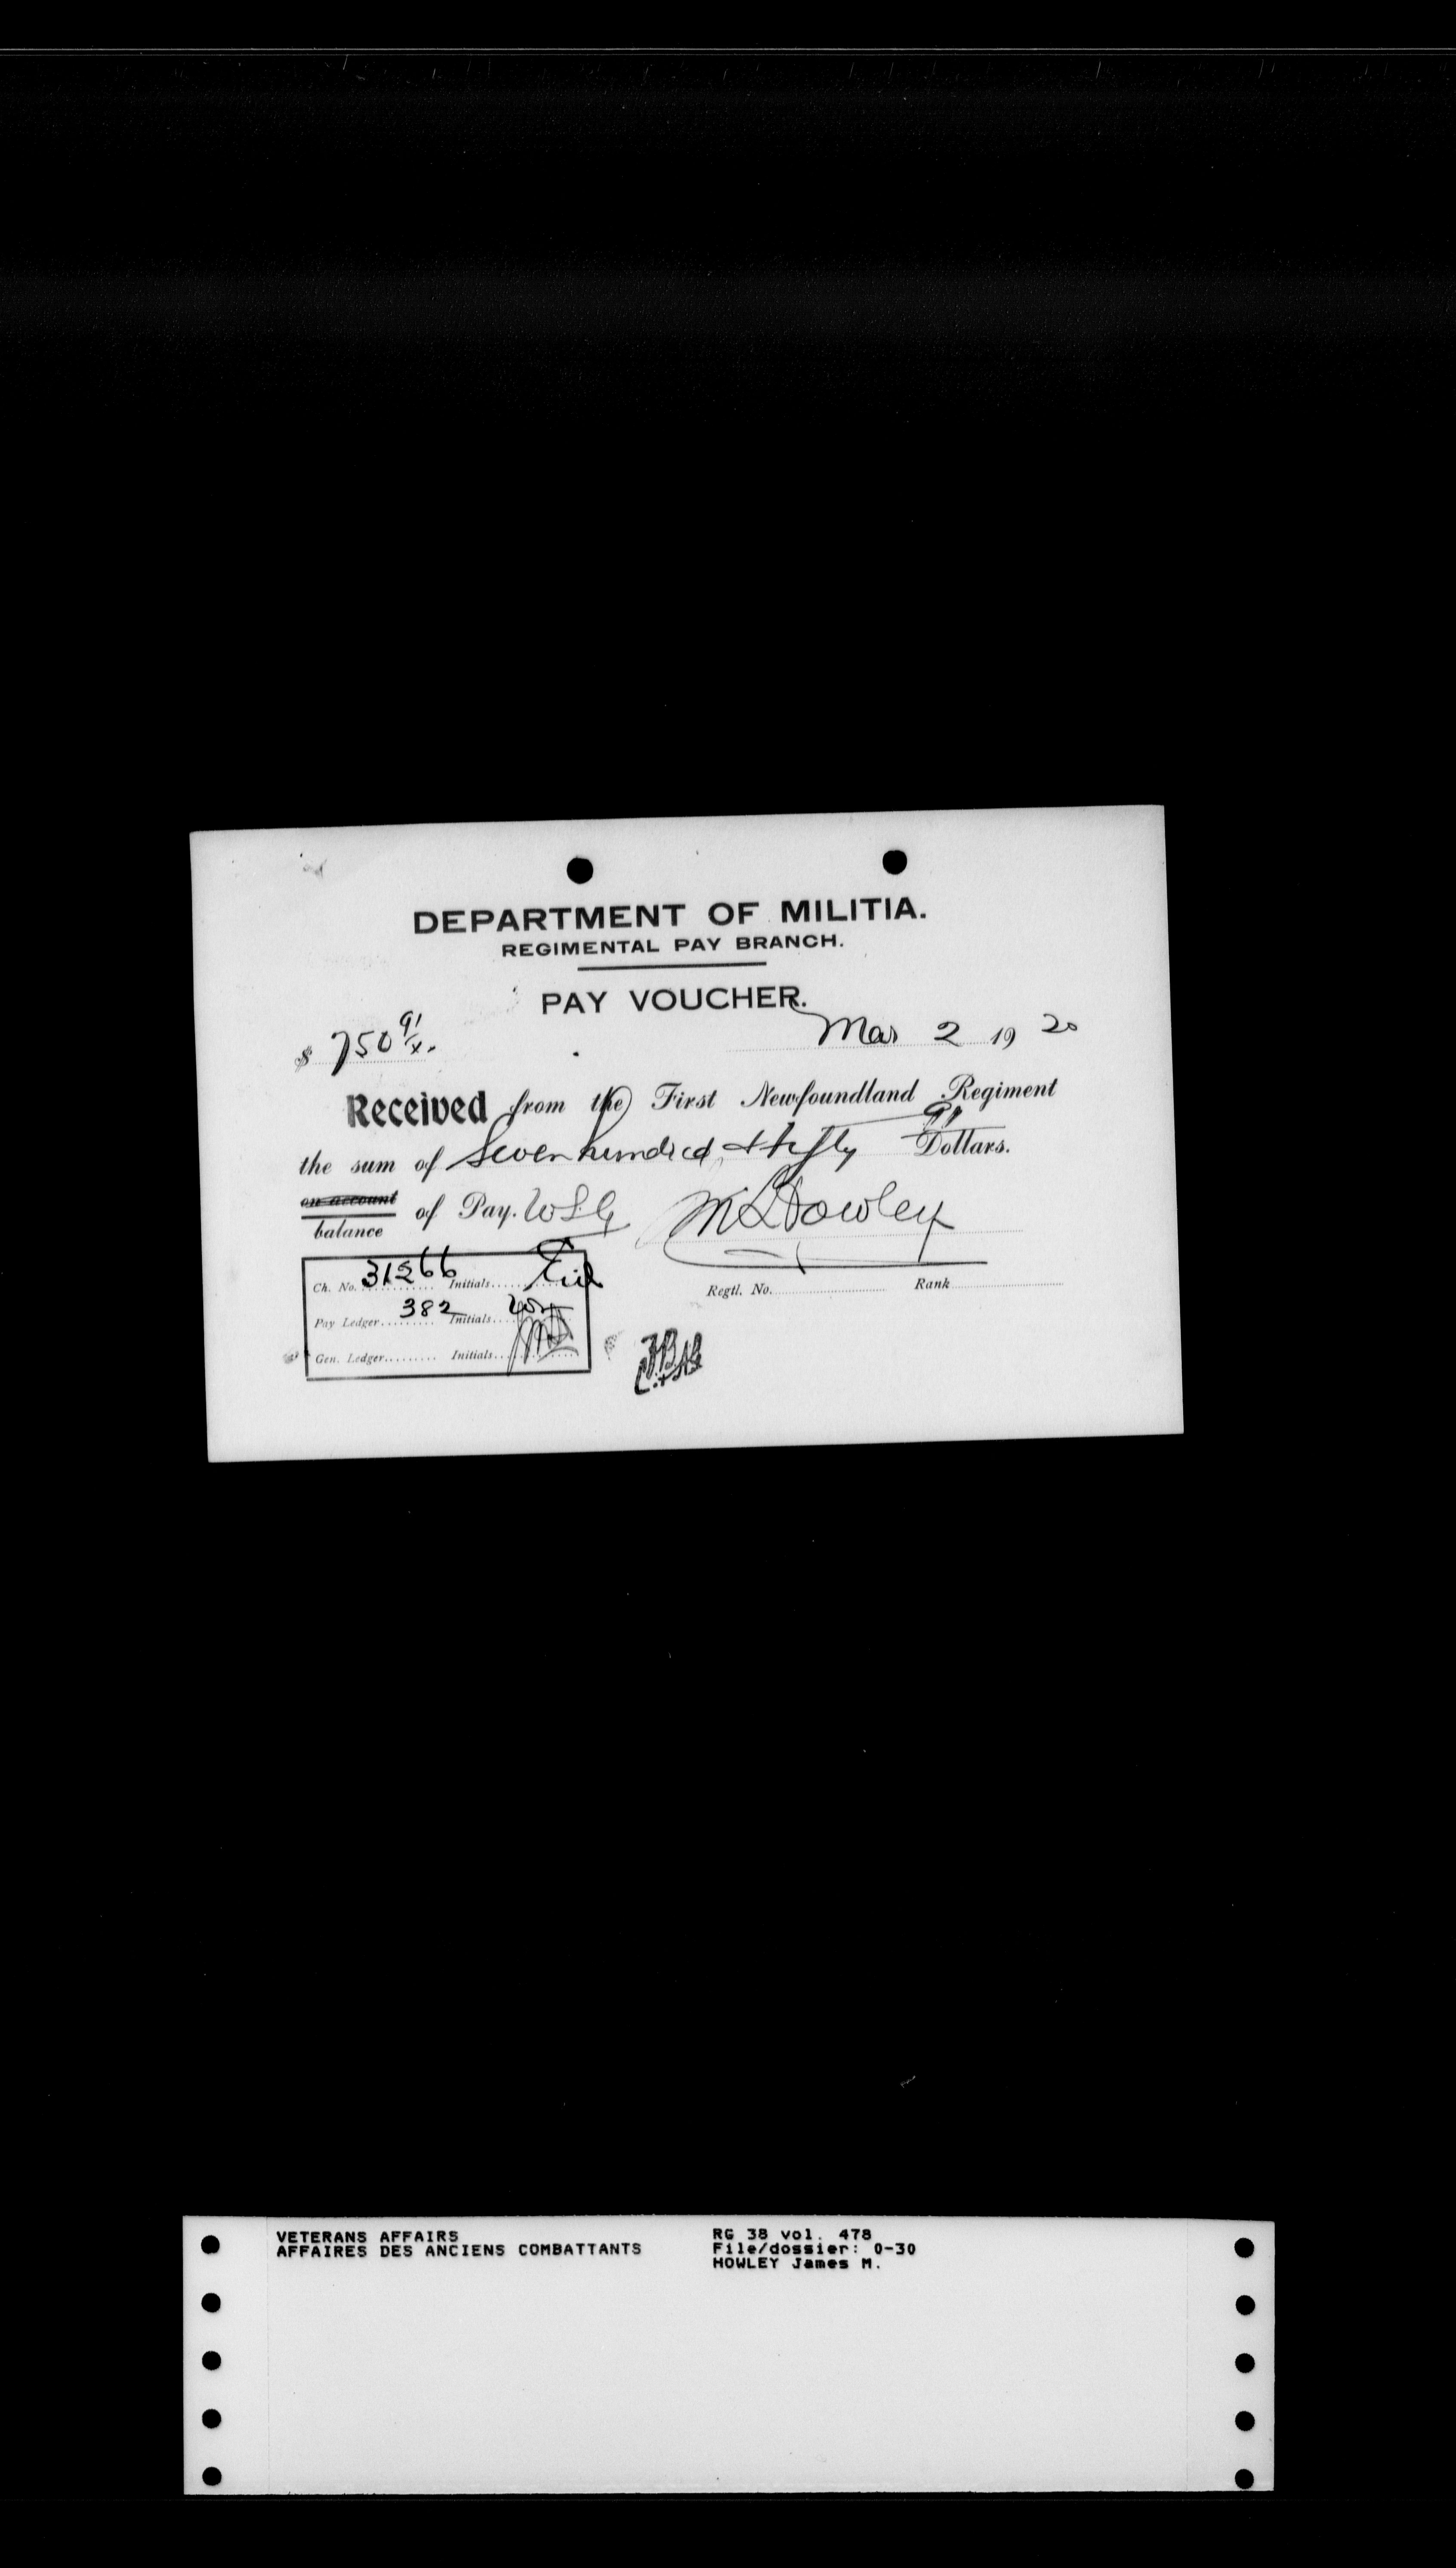 DEPARTMENT OF MILITIA.
REGIMENTAL PAY BRANCH.
PAY VOUCHER.
$ 750 91/x.
Mar 2 1920
Received from the First Newfoundland Regiment
the sum of Seven hundred & fifty 91 Dollars.
on account
balance of Pay. WSG
Ch. No. 31266 Initials
Pay Ledger 382 Initials
Gen. Ledger Initials
Regtl. No. Rank
VETERANS AFFAIRS
AFFAIRES DES ANCIENS COMBATTANTS
RG 38 vol. 478
File/dossier: 0-30
HOWLEY James M.